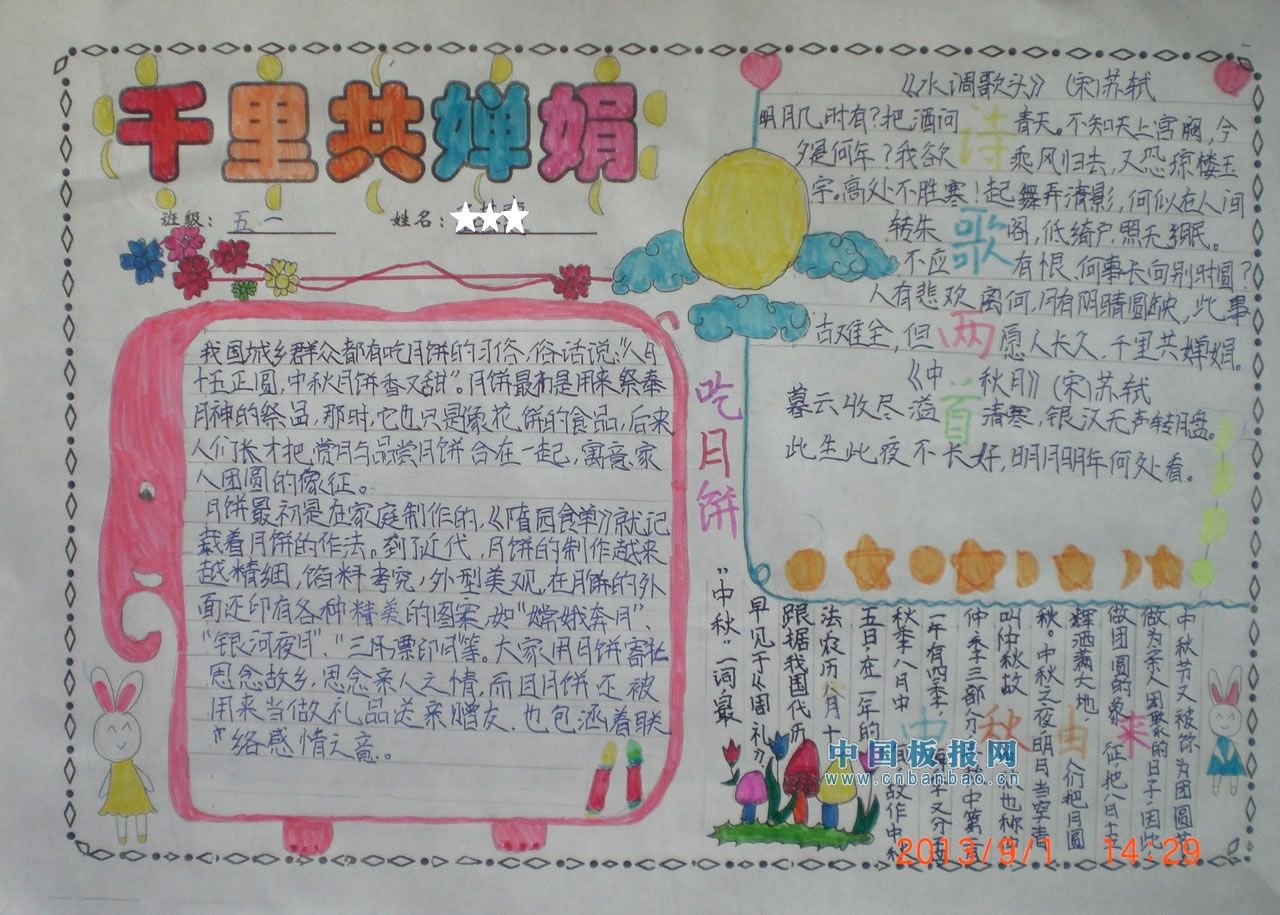 千里共婵娟
班级：五一 姓名：
我国城乡群众都有吃月饼的习俗，俗话说：“八月
十五正圆，中秋月饼香又甜”。月饼最初是用来祭奉
月神的祭品，那时，它也只是象花饼的食品，后来
人们长才把，赏月与品尝月饼合在一起，寓意家
人团圆的像征。
月饼最初是在家庭制作的，《隋园食单》就记
载着月饼的作法。到了近代，月饼的制作越来
越精细，馅料考究，外型美观，在月饼的外
面还印有各种精美的图案，如“嫦娥奔月”、
“银河夜月”、“三潭票印月”等。大家用月饼寄托
思念故乡，思念亲人之情，而且月饼还被
用来当做礼品送亲赠友，也包涵着联
络感情之意。
吃月饼
《水调歌头》(宋)苏轼
明月几时有？把酒问青天。不知天上宫阙，今
夕是何年？我欲乘风归去，又恐琼楼玉
宇。高处不胜寒！起舞弄清影，何似在人间
转朱阁，低绮户，照无眠。
不应有恨，何事长向别时圆？
人有悲欢离何，月有阴晴圆缺，此事
古难全，但愿人长久，千里共婵娟。
诗歌两首
《中秋月》(宋)苏轼
暮云收尽溢清寒，银汉无声转月盘。
此生此夜不长好，明月明年何处看。
“中秋”一词，最
早见于《周礼》
跟据我国代历
法农历八月十
五日，在一年的
秋季八月中
一年有四季，
仲季三部分
叫仲秋故
秋。中秋之夜，明月当空，清
辉洒满大地，人们把月圆
做团圆的象征，把八月十五
做为亲人团聚的日子，因此
中秋节又被称为团圆节
中秋由来
中国板报网
www.cnbanbao.cn
2013/9/1 14:29